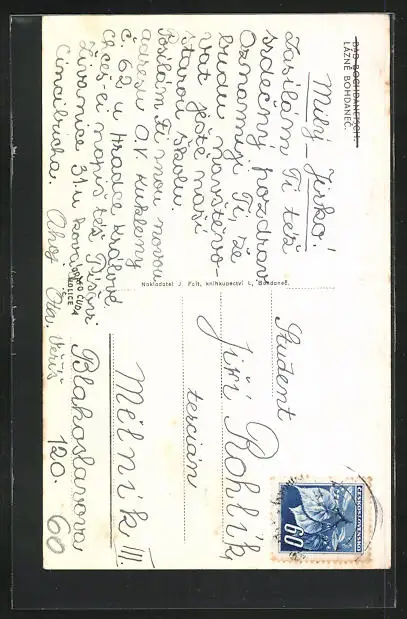 BAD BOCHDANETSCH.
LÁZNĚ BOHDANEČ.
Milý Jirko!
Zasílám Ti též
srdečný pozdrav
Oznamuji Ti, že
budu navštěvo-
vat ještě naši
starou školu.
Posílám Ti mou novou
adresu O.V. Kuklemy
č. 62 u Hradce Králové
Chceš-li napiš též
Živanice 31. u
Cincibucha. Ahoj
Nakladatel J. Folt, knihkupectví L. Bohdaneč.
Student
Jiří Rohlík,
tercián
Mělník III.
Blahoslavova
120.
60
ČESKOSLOVENSKO
60